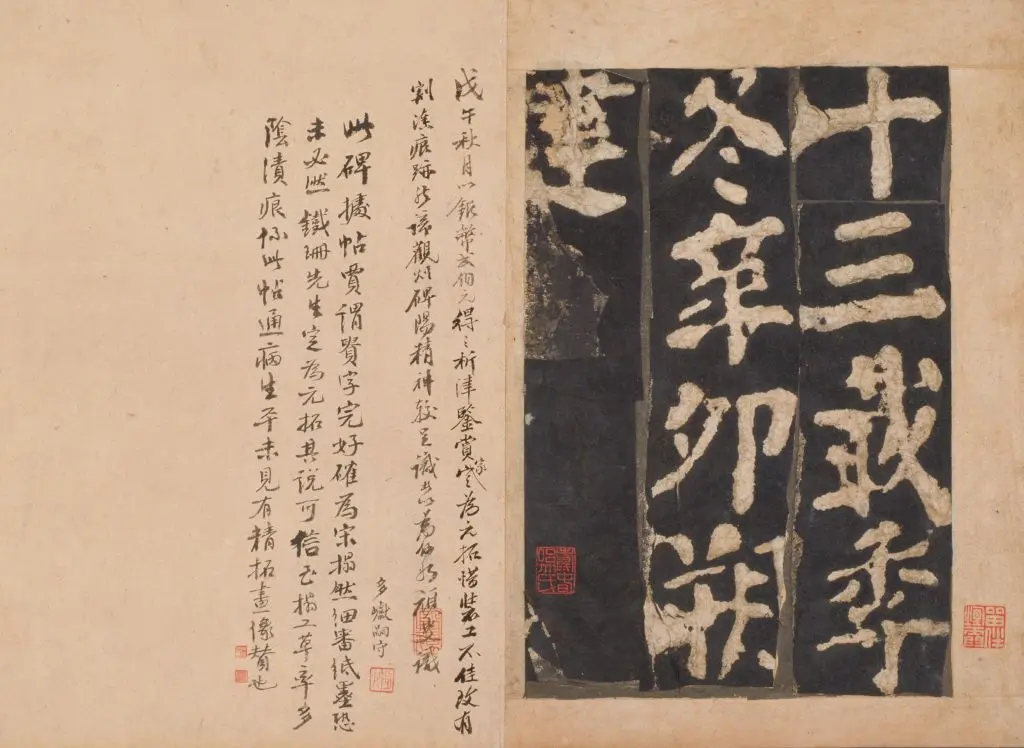 十三載季
冬辛卯朔
建
戊午秋月以銀幣弍佰元得之析津鑒賞家定為元拓惜裝工不佳致有
割湊痕跡然諦觀碑陽精神較足識者以為何如
多巘嗣守
此碑據帖賈謂賢字完好確為宋搨然細審紙墨恐
未必然鐵珊先生定為元拓其說可信至搨工草率多
陰漬痕係此帖通病生平未見有精拓畫像贊也